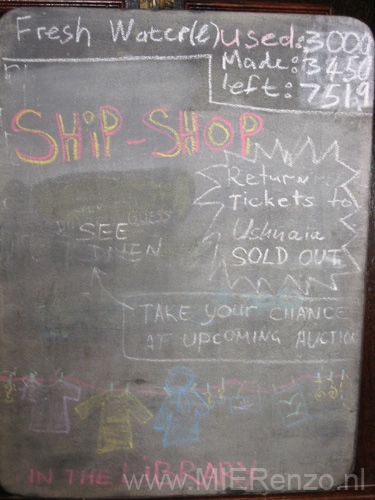 Fresh Water(l) used: 3000
Made: 3450
left: 7519
SHiP-SHOP
Return
Tickets to
Ushuaia
SOLD OUT
SEE
THEN
TAKE YOUR CHANCE
AT UPCOMING AUCTION
IN THE LIBRARY
www.MIERenzo.nl